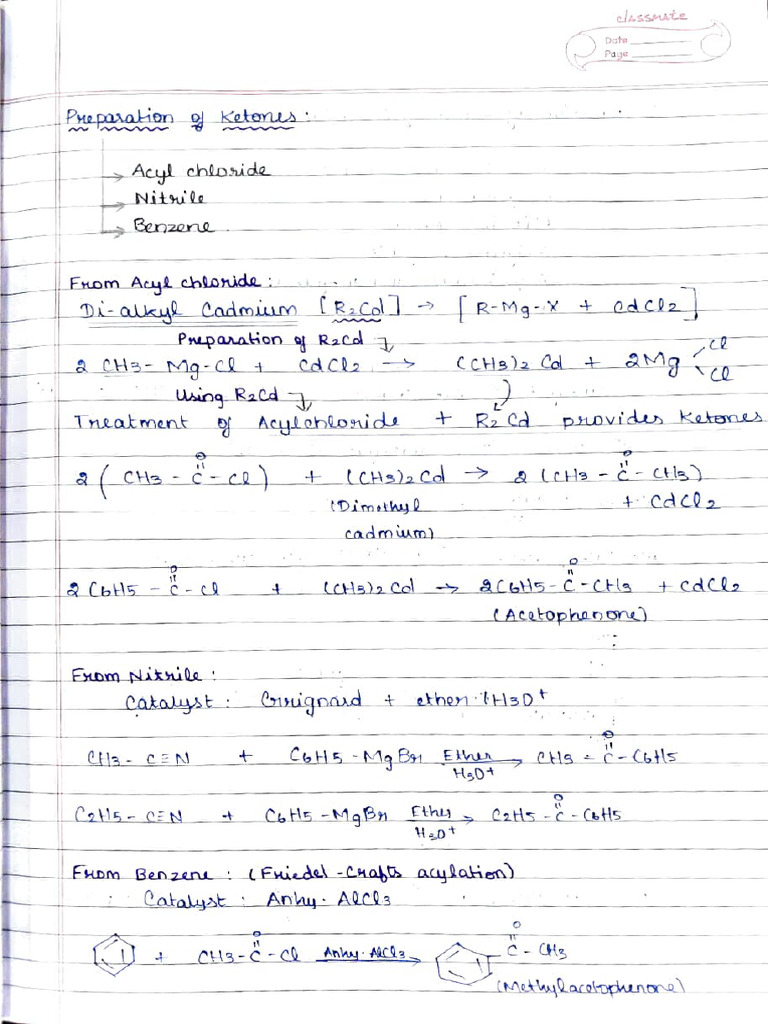 classmate
Date
Page
Preparation of Ketones :
→ Acyl chloride
→ Nitrile
→ Benzene
From Acyl chloride :
Di-alkyl Cadmium [R2Cd] → [R-Mg-X + CdCl2]
Preparation of R2Cd ↓
2 CH3 - Mg-Cl + CdCl2 → (CH3)2 Cd + 2Mg Cl Cl
Using R2Cd ↓
Treatment of Acylchloride + R2Cd provides Ketones
2 (CH3 - C(=O) - Cl) + (CH3)2Cd → 2 (CH3 - C(=O) - CH3)
(Dimethyl + CdCl2
cadmium)
2 C6H5 - C(=O) - Cl + (CH3)2 Cd → 2C6H5 - C(=O) - CH3 + CdCl2
(Acetophenone)
From Nitrile :
Catalyst : Grignard + ether / H3O+
CH3 - C≡N + C6H5 - MgBr Ether H3O+ → CH3 - C(=O) - C6H5
C2H5 - C≡N + C6H5 - MgBr Ether H3O+ → C2H5 - C(=O) - C6H5
From Benzene : (Friedel - Crafts acylation)
Catalyst : Anhy. AlCl3
+ CH3 - C(=O) - Cl Anhy. AlCl3 → C(=O) - CH3
(Methylacetophenone)